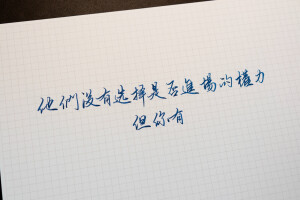 他們沒有选择是否進場的權力
但你有